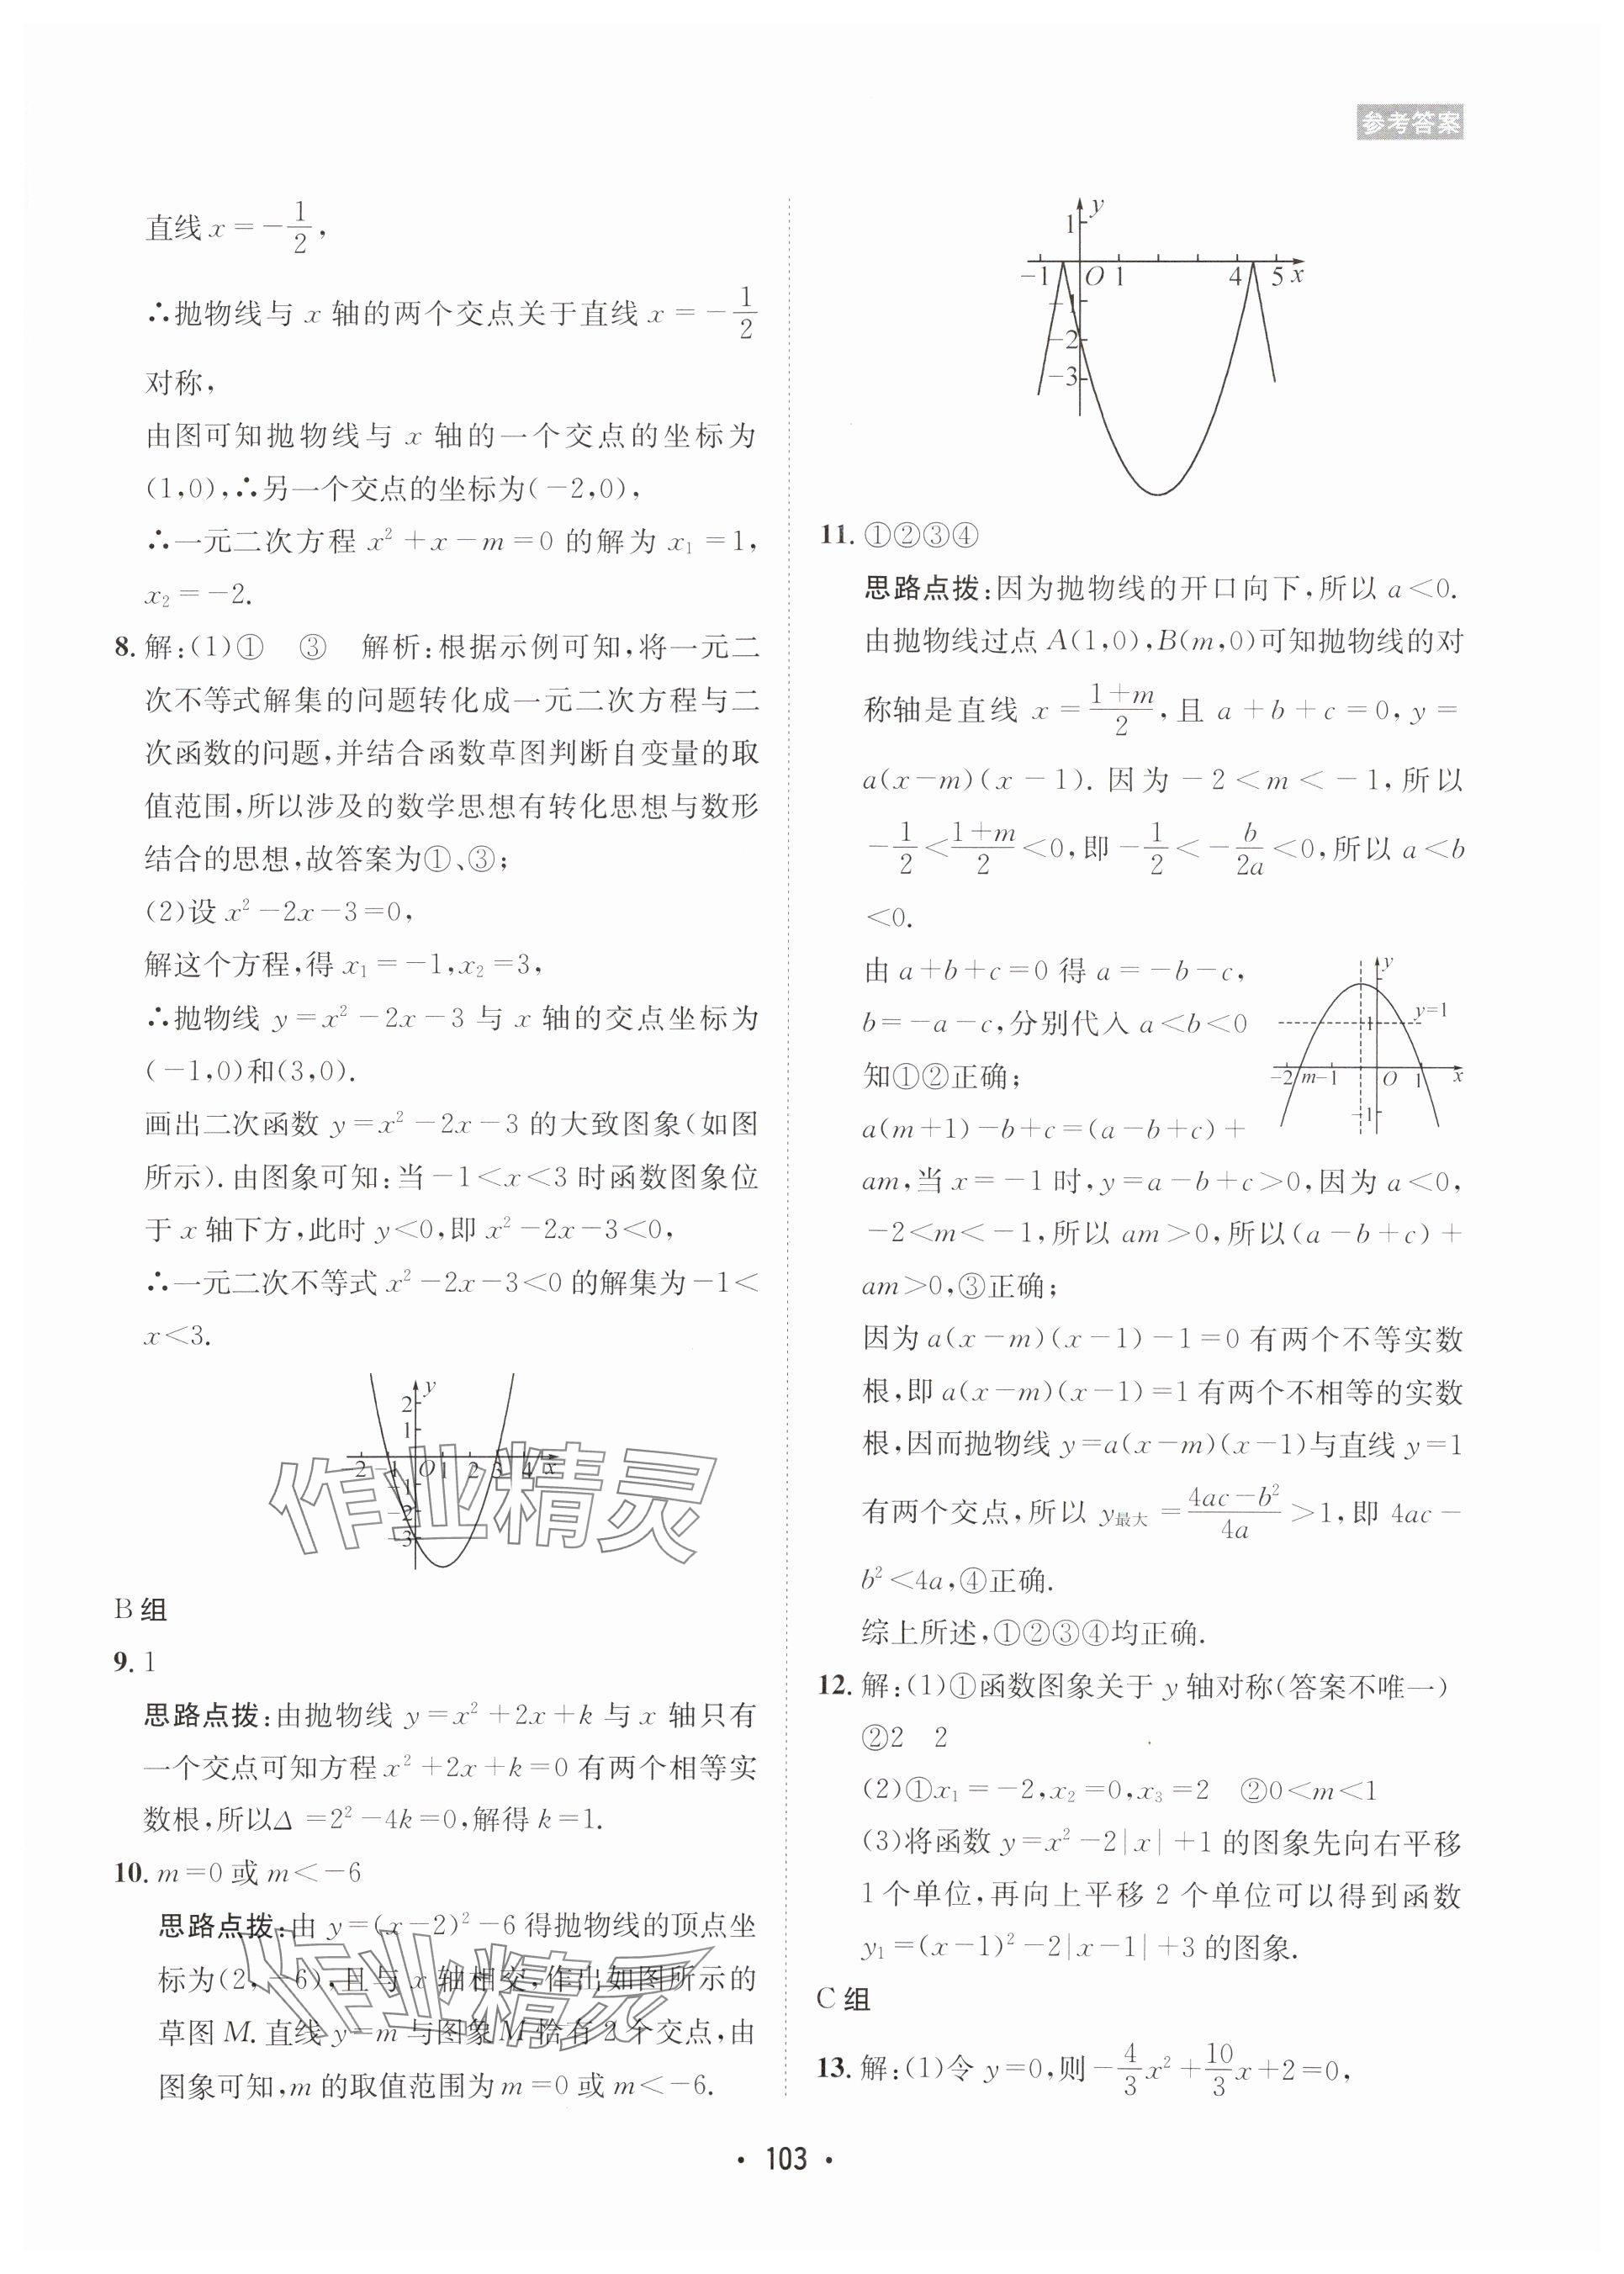 参考答案
直线 x=-1/2,
∴抛物线与 x 轴的两个交点关于直线 x=-1/2
对称,
由图可知抛物线与 x 轴的一个交点的坐标为
(1,0),∴另一个交点的坐标为(-2,0),
∴一元二次方程 x²+x-m=0 的解为 x₁=1,
x₂=-2.
8. 解:(1)① ③ 解析:根据示例可知,将一元二
次不等式解集的问题转化成一元二次方程与二
次函数的问题,并结合函数草图判断自变量的取
值范围,所以涉及的数学思想有转化思想与数形
结合的思想,故答案为①、③;
(2)设 x²-2x-3=0,
解这个方程,得 x₁=-1,x₂=3,
∴抛物线 y=x²-2x-3 与 x 轴的交点坐标为
(-1,0)和(3,0).
画出二次函数 y=x²-2x-3 的大致图象(如图
所示).由图象可知:当-1<x<3 时函数图象位
于 x 轴下方,此时 y<0,即 x²-2x-3<0,
∴一元二次不等式 x²-2x-3<0 的解集为-1<
x<3.
y
2
1
-2 -1 O 1 2 3 4 x
-1
-2
-3
作业精灵
B 组
9. 1
思路点拨:由抛物线 y=x²+2x+k 与 x 轴只有
一个交点可知方程 x²+2x+k=0 有两个相等实
数根,所以Δ=2²-4k=0,解得 k=1.
10. m=0 或 m<-6
思路点拨:由 y=(x-2)²-6 得抛物线的顶点坐
标为(2,-6),且与 x 轴相交,作出如图所示的
草图 M.直线 y=m 与图象 M 恰有 2 个交点,由
图象可知,m 的取值范围为 m=0 或 m<-6.
作业精灵
y
1
-1 O 1 4 5 x
-1
-2
-3
11. ①②③④
思路点拨:因为抛物线的开口向下,所以 a<0.
由抛物线过点 A(1,0),B(m,0)可知抛物线的对
称轴是直线 x=(1+m)/2,且 a+b+c=0,y=
a(x-m)(x-1).因为-2<m<-1,所以
-1/2<(1+m)/2<0,即-1/2<-b/2a<0,所以 a<b
<0.
由 a+b+c=0 得 a=-b-c,
b=-a-c,分别代入 a<b<0
知①②正确;
a(m+1)-b+c=(a-b+c)+
y
y=1
1
-2 m -1 O 1 x
-1
am,当 x=-1 时,y=a-b+c>0,因为 a<0,
-2<m<-1,所以 am>0,所以(a-b+c)+
am>0,③正确;
因为 a(x-m)(x-1)-1=0 有两个不等实数
根,即 a(x-m)(x-1)=1 有两个不相等的实数
根,因而抛物线 y=a(x-m)(x-1)与直线 y=1
有两个交点,所以 y最大=(4ac-b²)/4a>1,即 4ac-
b²<4a,④正确.
综上所述,①②③④均正确.
12. 解:(1)①函数图象关于 y 轴对称(答案不唯一)
②2 2
(2)①x₁=-2,x₂=0,x₃=2 ②0<m<1
(3)将函数 y=x²-2|x|+1 的图象先向右平移
1 个单位,再向上平移 2 个单位可以得到函数
y₁=(x-1)²-2|x-1|+3 的图象.
C 组
13. 解:(1)令 y=0,则-4/3x²+10/3x+2=0,
· 103 ·